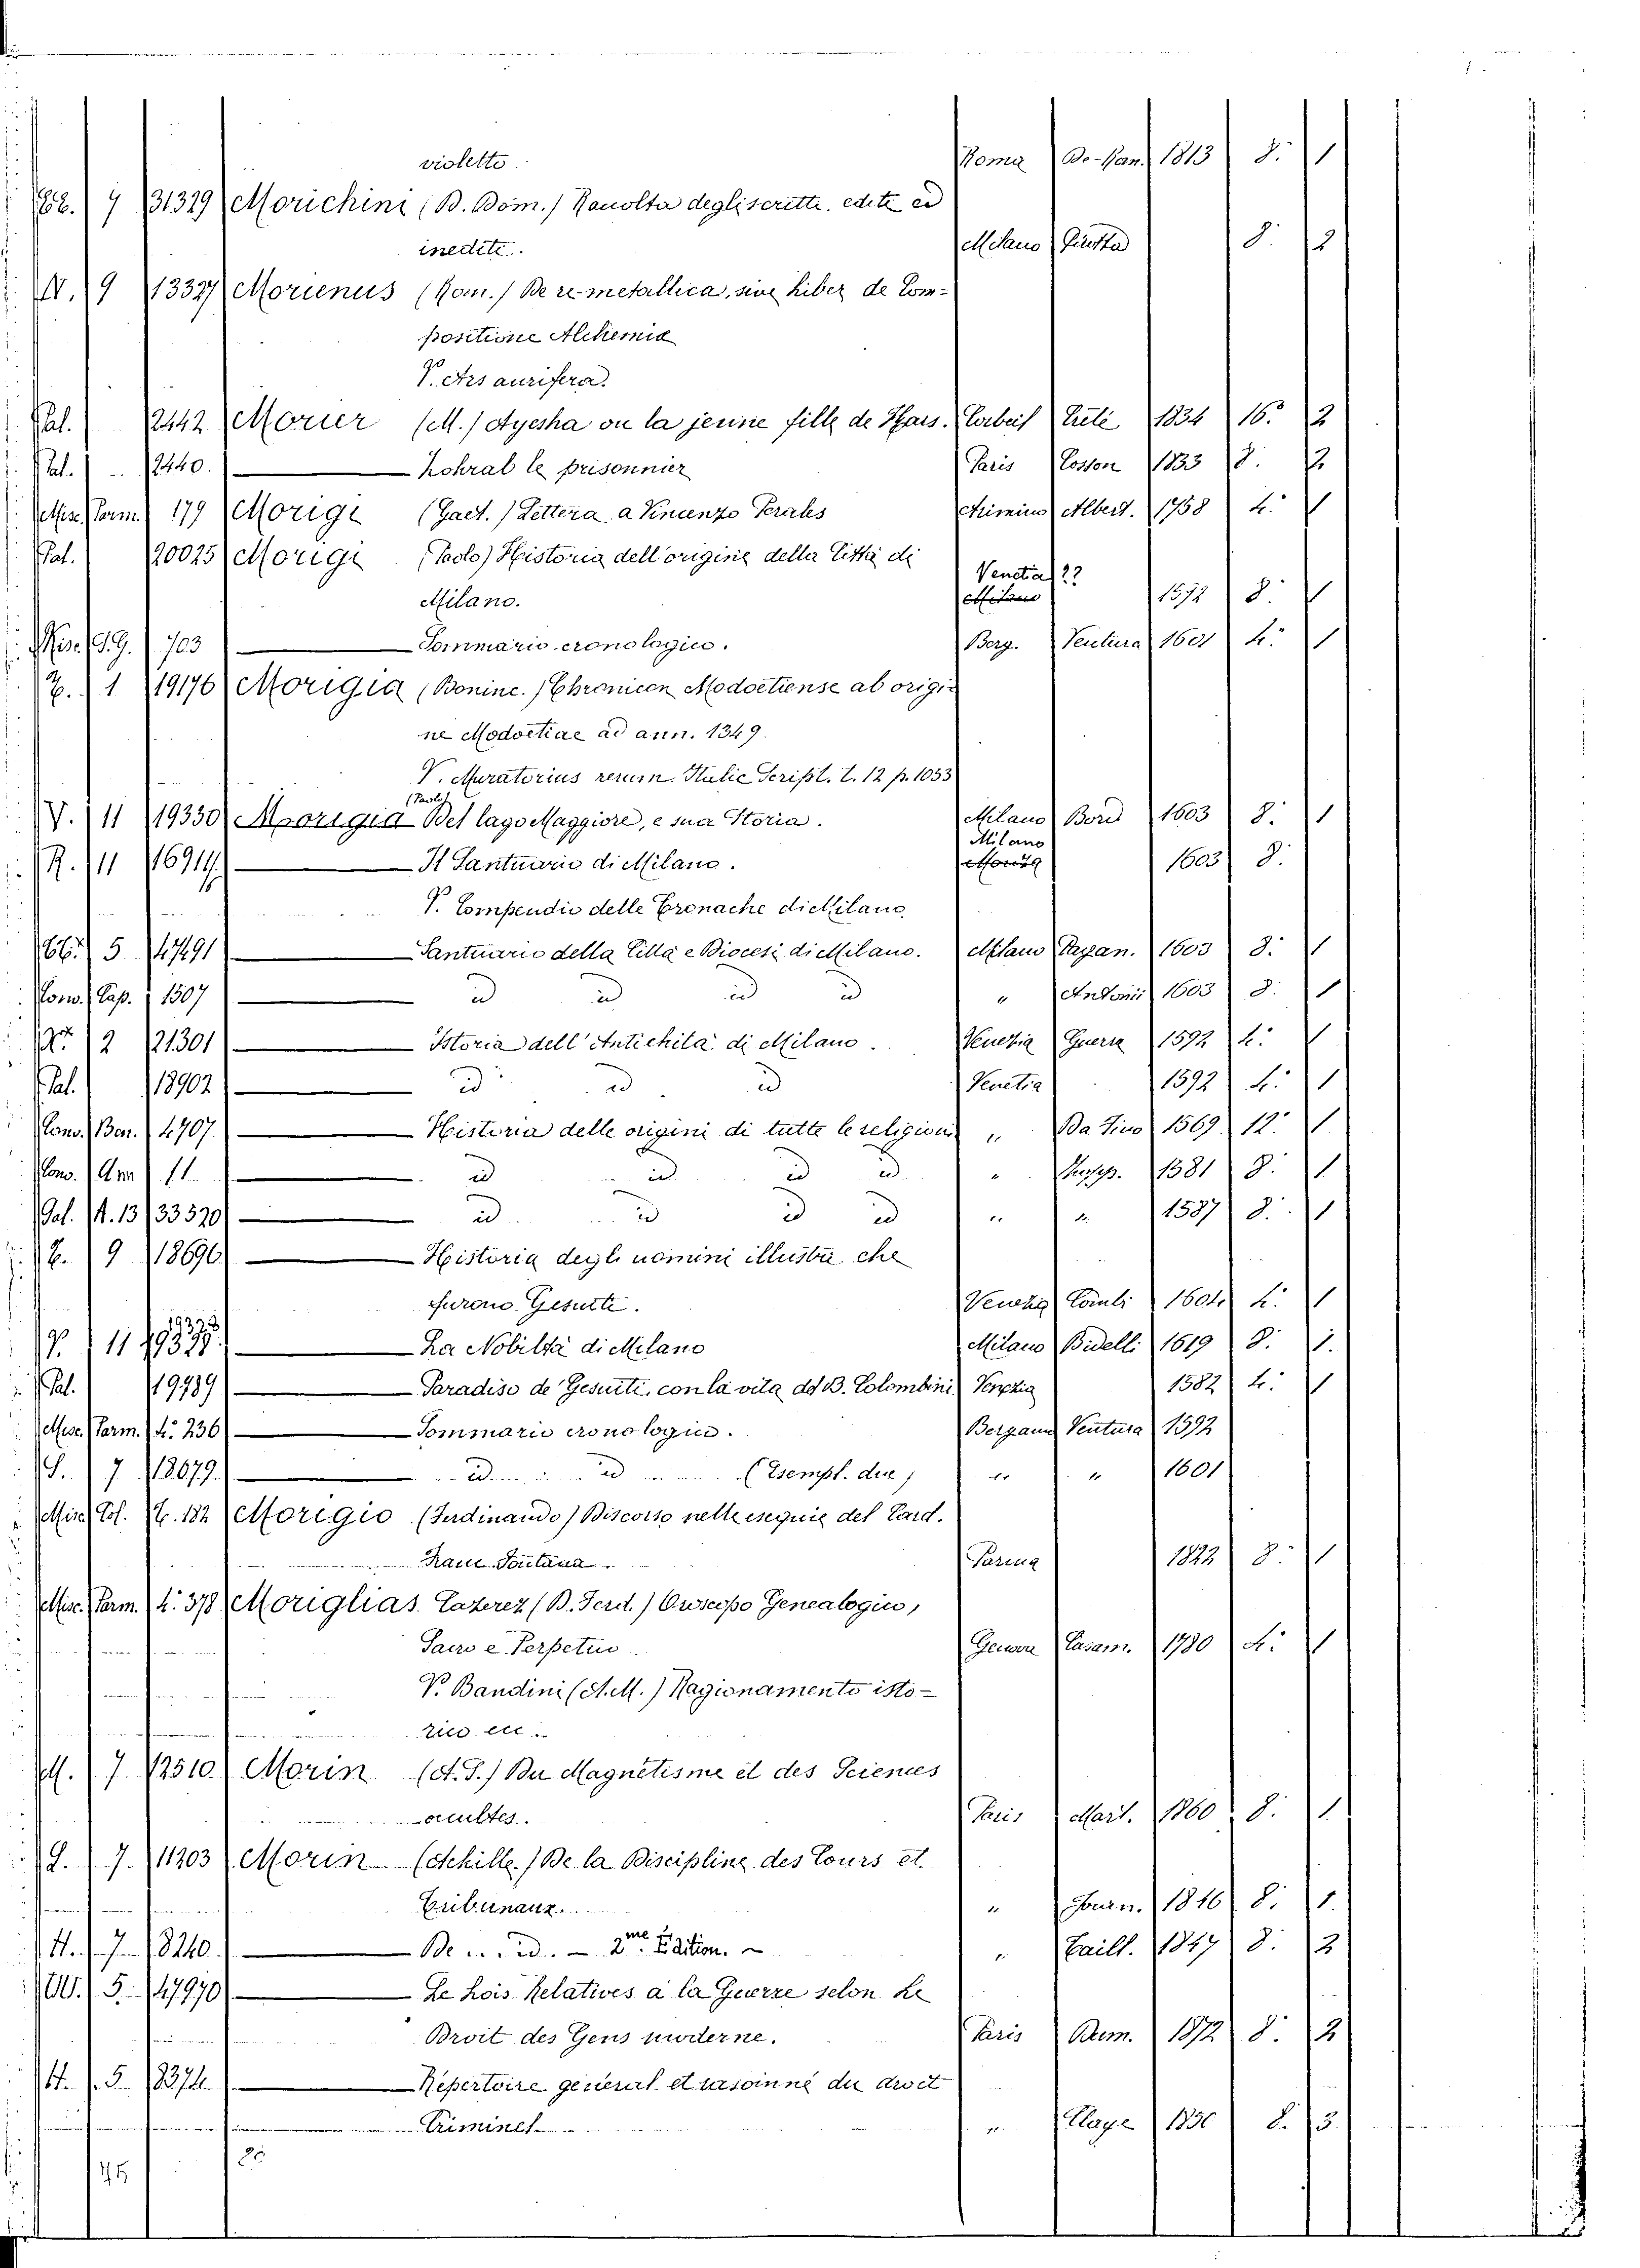 violetto. Roma De-Rom. 1813 8. 1
BB. 7 31329 Morichini (B. Dom.) Racolta degli scritti, edite ed
inedite. Milano Giusta 8. 2
N. 9 13327 Morienus (Rom.) De re metallica, sive Liber de Com-
positione Alchemia
V. Ars aurifera.
Pal. 12442 Morier (M.) Ayesha ou la jeune fille de Kars. Corbeil Creté 1834 16. 2
Pal. 12440. Zohrab le prisonnier Paris Cosson 1833 8. 2
Misc. Parm. 179 Morigi (Gaet.) Lettera a Vincenzo Perales Arimino Albert. 1758 4. 1
Pal. 20025 Morigi (Paolo) Historia dell'origine della Città di
Milano. Venetia ?? Milano 1572 8. 1
Misc. G.G. 703 Sommario cronologico. Berg. Ventura 1601 4. 1
Z. 1 19176 Morigia (Boninc.) Chronicon Modoetiense ab origi-
ne Modoetiae ad ann. 1349.
V. Muratorius rerum. Italic Script. t. 12 p. 1053
V. 11 19330 Morigia (Paolo) Del lago Maggiore, e sua Storia. Milano Bord 1603 8. 1
R. 11 16914. Il Santuario di Milano. Milano 1603 8.
V. Compendio delle Cronache di Milano
BB. 5 47491 Santuario della Città e Diocesi di Milano. Milano Pagan. 1603 8. 1
Conv. Cap. 1507 id id id id " Antonii 1603 8. 1
2 21301 Istoria dell'Antichità di Milano. Venezia Guerra 1592 4. 1
Pal. 18902 id id id Venetia 1592 4. 1
Conv. Ben. 4707. Historia delle origini di tutte le religioni " Da Fino 1569. 12. 1
Conv. Ann 11. id id id id " 1581 8. 1
Pal. A. 13 33520 id id id id " " 1587 8. 1
Z. 9 18696 Historia degli uomini illustri che
furono Gesuiti. Venezia 1604 4. 1
V. 11 19328 La Nobiltà di Milano Milano Bidelli 1619 8. 1.
Pal. 19789 Paradiso de' Gesuiti, con la vita del B. Colombini Venezia 1582 4. 1
Misc. Parm. 4. 236 Sommario cronologico. Bergamo Ventura 1592
S. 7 18079. id. id (Esempl. due) " " 1601
Misc. Pol. T. 182 Morigio (Ferdinando) Discorso nelle esequie del Card.
Franc. Fontana. Parma 1822 8. 1
Misc. Parm. 4. 378 Moriglias Cazerez (B. Ferd.) Ouseipo Genealogico,
Sacro e Perpetuo. Genova Casam. 1780 4. 1
V. Bandini (A.M.) Ragionamento isto-
rico ecc.
M. 7 12510 Morin (A. S.) Du Magnetisme et des Sciences
occultes. Paris Mart. 1860 8. 1
I. 7. 11203 Morin (Achille.) De la Discipline des Cours et
Tribunaux. " Journ. 1846 8. 1.
H. 7 8240 De ... id. - 2me. Edition. " Caill. 1847 8. 2
W. 5. 47970 Le Lois Relatives à la Guerre selon Le
Droit des Gens moderne. Paris Dum. 1872 8. 2
H. 5 8374 Répertoire general et rasoinné du droit
Criminel " Claye 1850 8. 3
45 25